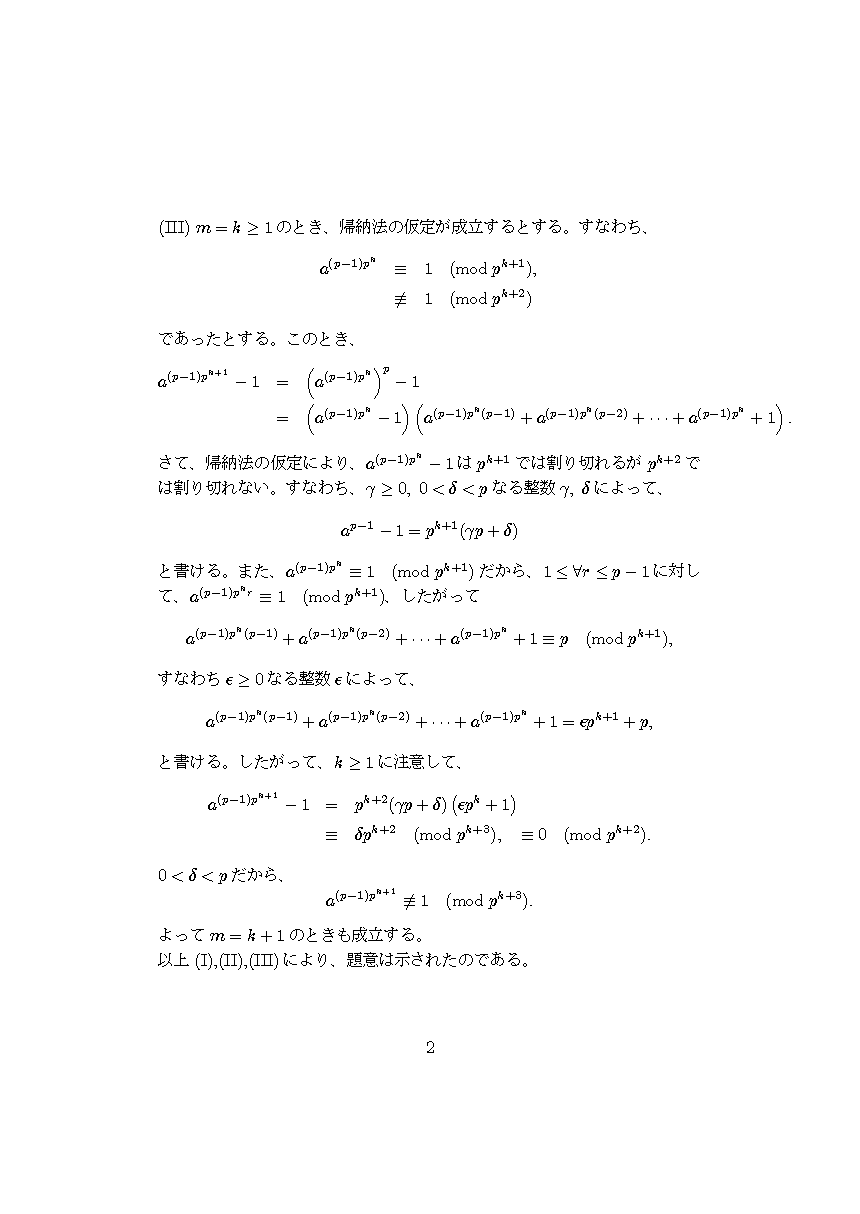 (III) m = k ≥ 1 のとき、帰納法の仮定が成立するとする。すなわち、
a^{(p−1)p^k} ≡ 1 (mod p^{k+1}),
≢ 1 (mod p^{k+2})
であったとする。このとき、
a^{(p−1)p^{k+1}} − 1 = (a^{(p−1)p^k})^p − 1
= (a^{(p−1)p^k} − 1)(a^{(p−1)p^k(p−1)} + a^{(p−1)p^k(p−2)} + ··· + a^{(p−1)p^k} + 1).
さて、帰納法の仮定により、a^{(p−1)p^k} − 1 は p^{k+1} では割り切れるが p^{k+2} で
は割り切れない。すなわち、γ ≥ 0, 0 < δ < p なる整数 γ, δ によって、
a^{p−1} − 1 = p^{k+1}(γp + δ)
と書ける。また、a^{(p−1)p^k} ≡ 1 (mod p^{k+1}) だから、1 ≤ ∀r ≤ p − 1 に対し
て、a^{(p−1)p^k r} ≡ 1 (mod p^{k+1})、したがって
a^{(p−1)p^k(p−1)} + a^{(p−1)p^k(p−2)} + ··· + a^{(p−1)p^k} + 1 ≡ p (mod p^{k+1}),
すなわち ϵ ≥ 0 なる整数 ϵ によって、
a^{(p−1)p^k(p−1)} + a^{(p−1)p^k(p−2)} + ··· + a^{(p−1)p^k} + 1 = ϵp^{k+1} + p,
と書ける。したがって、k ≥ 1 に注意して、
a^{(p−1)p^{k+1}} − 1 = p^{k+2}(γp + δ)(ϵp^k + 1)
≡ δp^{k+2} (mod p^{k+3}), ≡ 0 (mod p^{k+2}).
0 < δ < p だから、
a^{(p−1)p^{k+1}} ≢ 1 (mod p^{k+3}).
よって m = k + 1 のときも成立する。
以上 (I),(II),(III) により、題意は示されたのである。
2